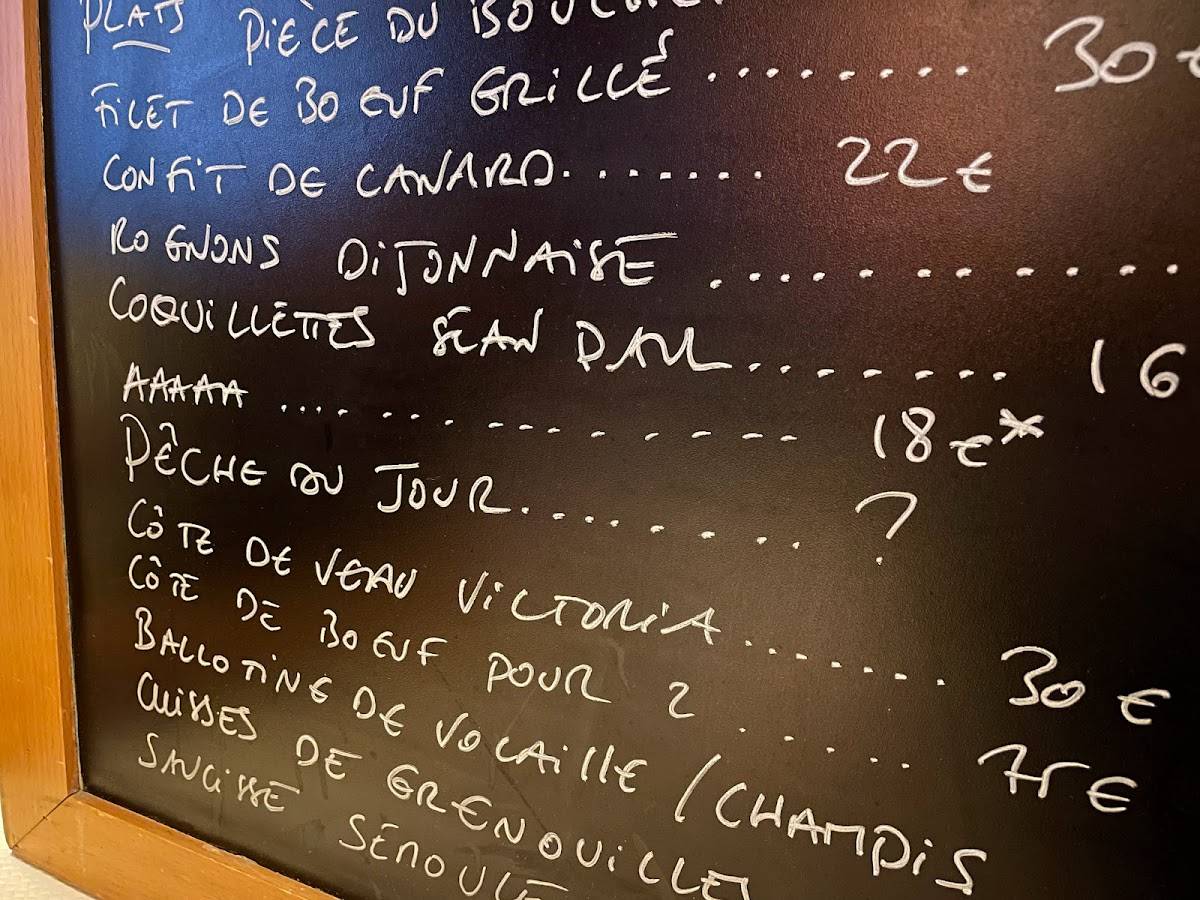 PLATS PIÈCE DU BOUCHER
FILET DE BOEUF GRILLÉ ........ 30€
CONFIT DE CANARD........ 22€
ROGNONS DIJONNAISE ............
COQUILLETTES SEAN PAUL........ 16
AAAAA .............. 18€*
PÊCHE DU JOUR......... ?
CÔTE DE VEAU VICTORIA....... 30€
CÔTE DE BOEUF POUR 2 ...... 75€
BALLOTINE DE VOLAILLE / CHAMPIS
CUISSES DE GRENOUILLE
SAUCISSE